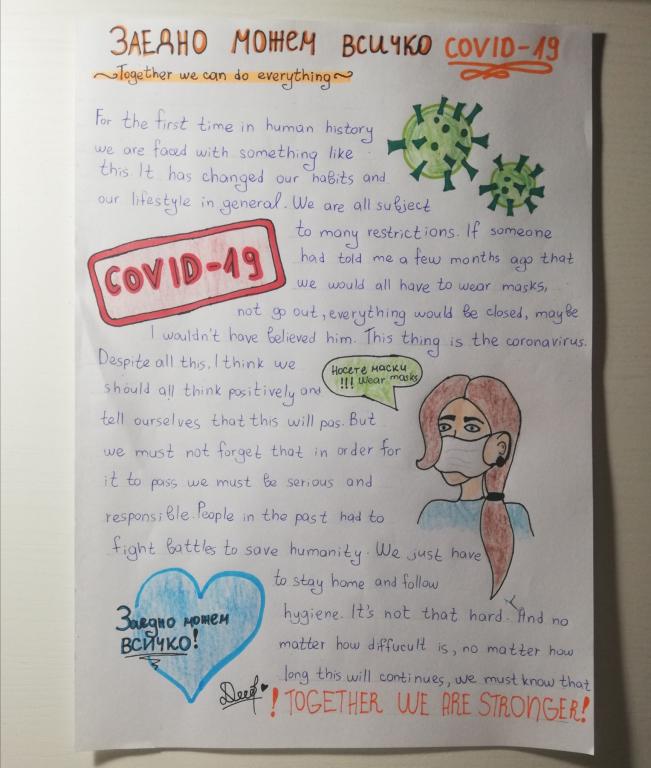 ЗАЕДНО МОЖЕМ ВСИЧКО COVID-19
~Together we can do everything~
For the first time in human history
we are faced with something like
this. It has changed our habits and
our lifestyle in general. We are all subject
to many restrictions. If someone
had told me a few months ago that
COVID-19
we would all have to wear masks,
not go out, everything would be closed, maybe
I wouldn't have believed him. This thing is the coronavirus.
Despite all this, I think we
should all think positively and
Носете маски
!!! Wear masks
tell ourselves that this will pas. But
we must not forget that in order for
it to pass we must be serious and
responsible. People in the past had to
fight battles to save humanity. We just have
to stay home and follow
hygiene. It's not that hard. And no
Заедно можем
ВСИЧКО!
matter how diffucult is, no matter how
long this will continues, we must know that
! TOGETHER WE ARE STRONGER!